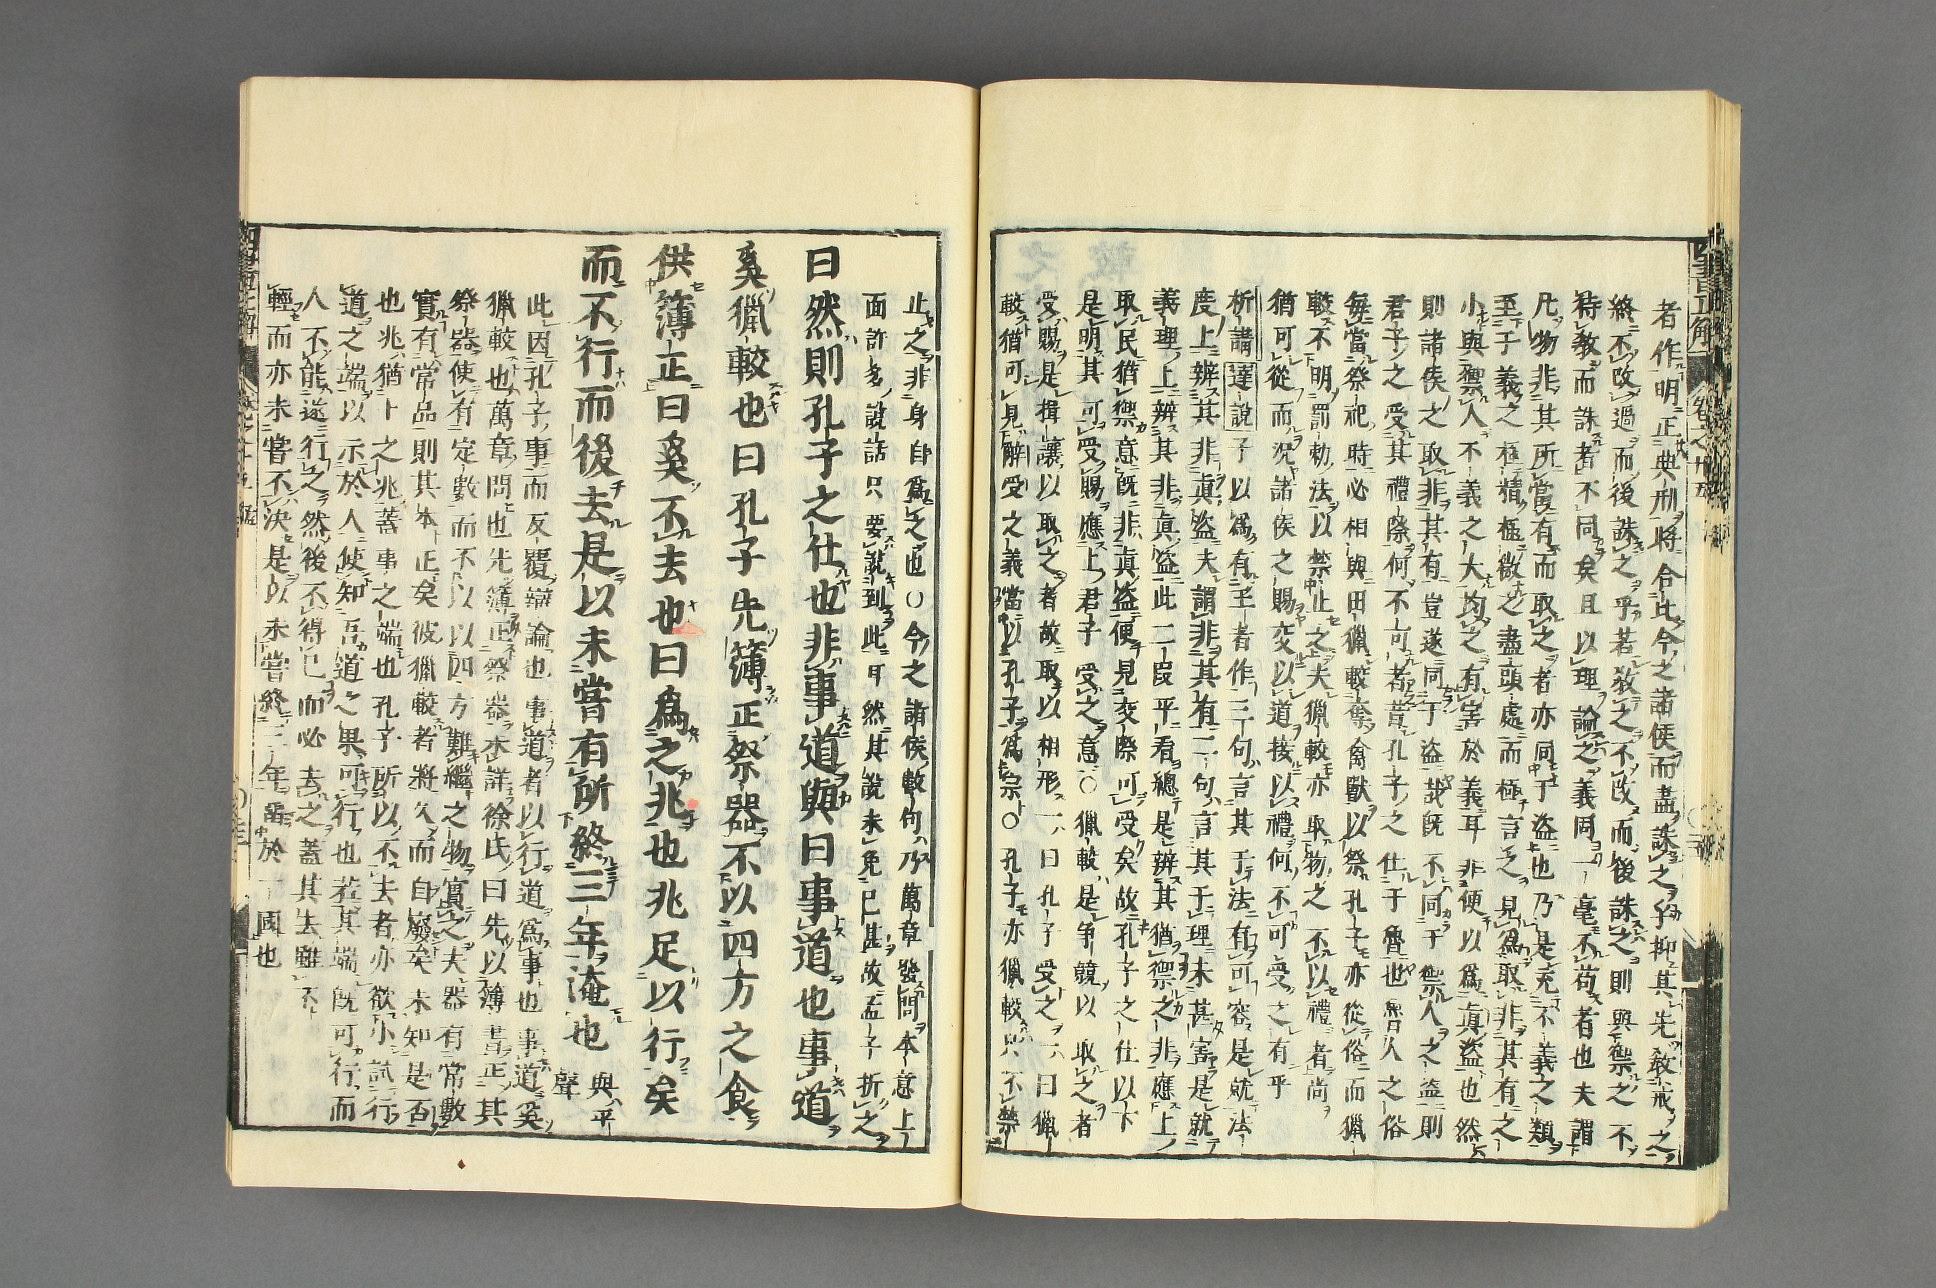 者作明正典刑將合比今之諸侯而盡誅之乎抑其先教戒之
終不改過而後誅之乎若教之不改而後誅之則與禦之不
待教而誅者不同矣且以理論之義同一毫不苟者也夫謂
凡物非其所當有而取之者亦同于盜也乃是充不義之類
至于義之極精極微之盡頭處而極言之見爲取非其有之
小與禦人不義之大均之有害於義耳非便以爲眞盜也然
則諸侯之取非其有豈遂同于盜哉旣不同于禦人之盜則
君子之受其禮際何不可者昔孔子之仕于魯也魯人之俗
每當祭祀時必相與田獵較奪禽獸以祭孔子亦從俗而獵
較不明罰勅法以禁止之夫獵較亦取物之不以禮者尚
猶可從而況諸侯之賜交以道接以禮何不可受之有乎
析講達說子以爲有王者作三句言其于法有可容是就法
度上辨其非眞盜夫謂非其有二句言其于理未甚害是就
義理上辨其非眞盜此二段平看總是辨其猶禦之非應上
取民猶禦意旣非眞盜便見交際可受矣故孔子之仕以下
是明其可受賜應上君子受之意○獵較是爭競以取之者
受賜是揖讓以取之者故取以相形一曰孔子受之一曰獵
較猶可見解受之義當以孔子爲宗○孔子亦獵較只不禁
止之非身自爲之也○今之諸侯數句乃萬章發問本意上
面許多說話只要說到此耳然其說未免已甚故孟子折之
曰然則孔子之仕也非事道與曰事道也事道
奚獵較也曰孔子先簿正祭器不以四方之食
供簿正曰奚不去也曰爲之兆也兆足以行矣
而不行而後去是以未嘗有所終三年淹也 與平聲
此因孔子事而反覆辯論也事道者以行道爲事也事道奚
獵較也萬章問也先簿正祭器未詳徐氏曰先以簿書正其
祭器使有定數而不以四方難繼之物實之夫器有常數
實有常品則其本正矣彼獵較者將久而自廢矣未知是否
也兆猶卜之兆蓋事之端也孔子所以不去者亦欲小試行
道之端以示於人使知吾道之果可行也若其端旣可行而
人不能遂行之然後不得已而必去之蓋其去雖不
輕而亦未嘗不決是以未嘗終三年留於一國也